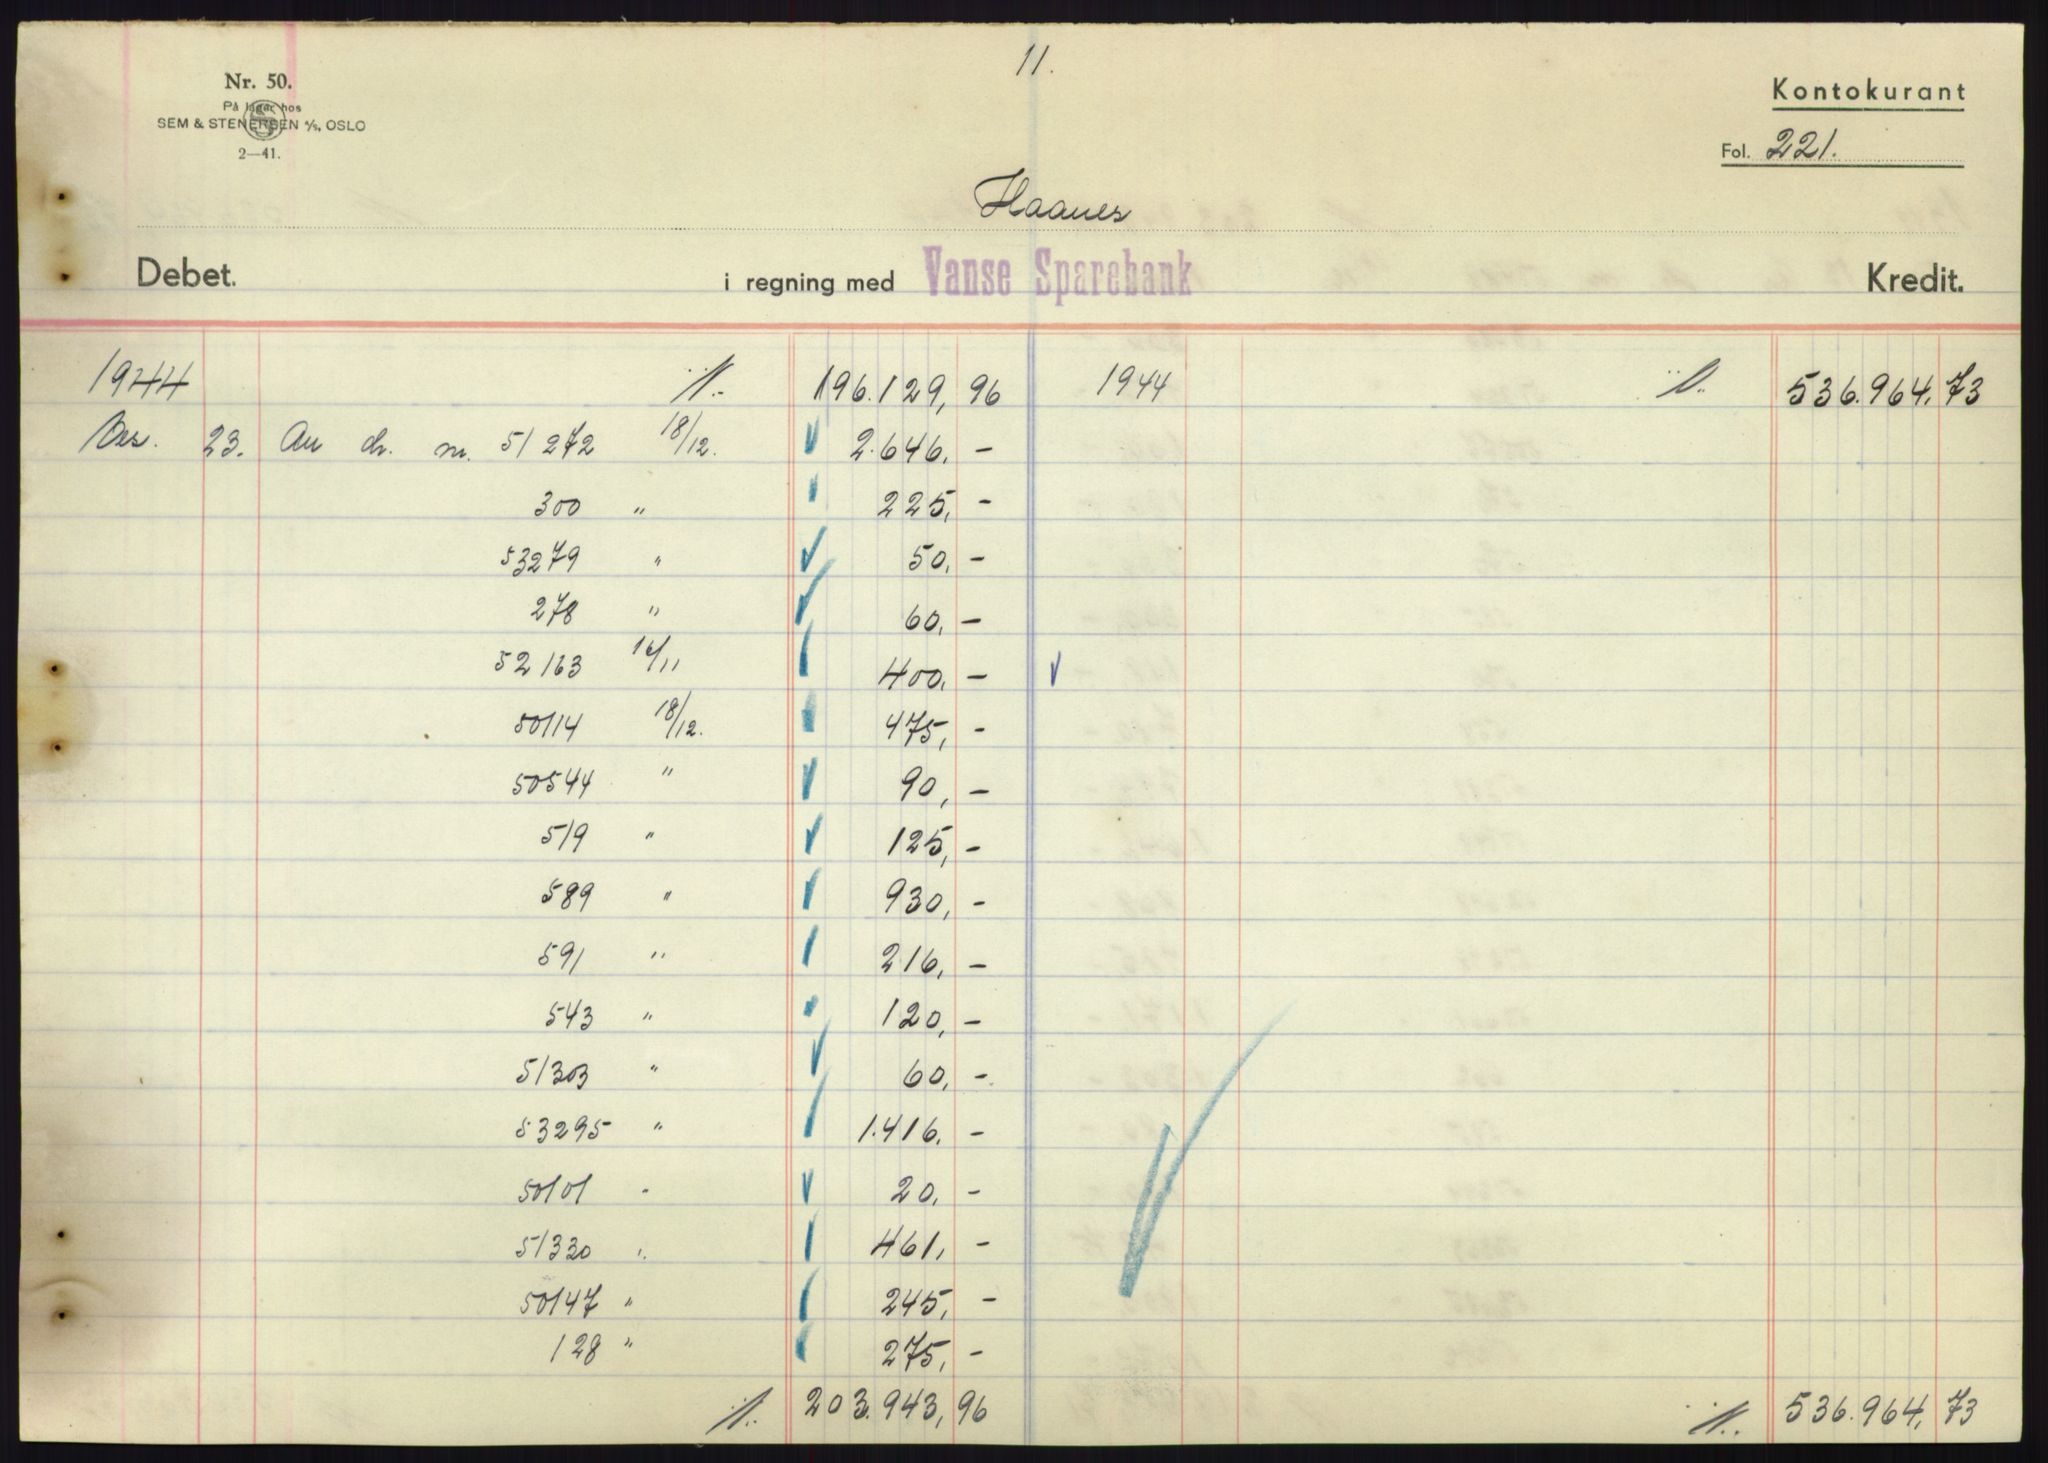 11.
Nr. 50.
På lager hos
SEM & STENERSEN A/S, OSLO
2—41.
Kontokurant
Fol. 221.
Haanes
Debet. i regning med Vanse Sparebank Kredit.
1944 196.129,96 1944 536.964,73
Des. 23. An dr. nr. 51272 18/12. 2.646,-
300 " 225,-
53279 " 50,-
278 " 60,-
52163 16/11 400,-
50114 18/12. 475,-
50544 " 90,-
519 " 125,-
589 " 930,-
591 " 216,-
543 " 120,-
51303 " 60,-
53295 " 1.416,-
50101 " 20,-
51330 " 461,-
50147 " 245,-
128 " 275,-
203.943,96 536.964,73